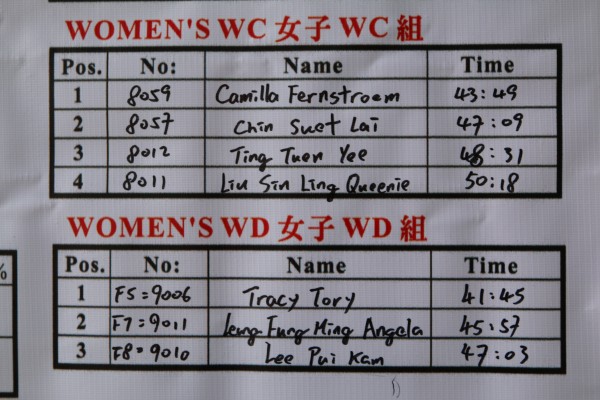 WOMEN'S WC 女子 WC 組
Pos. No: Name Time
1 8059 Camilla Fernstroem 43:49
2 8057 Chin Suet Lai 47:09
3 8012 Ting Tuen Yee 48:31
4 8011 Liu Sin Ling Queenie 50:18
WOMEN'S WD 女子 WD 組
%
Pos. No: Name Time
1 F5=9006 Tracy Tory 41:45
2 F7=9011 Leung Fung Ming Angela 45:57
3 F8=9010 Lee Pui Kam 47:03